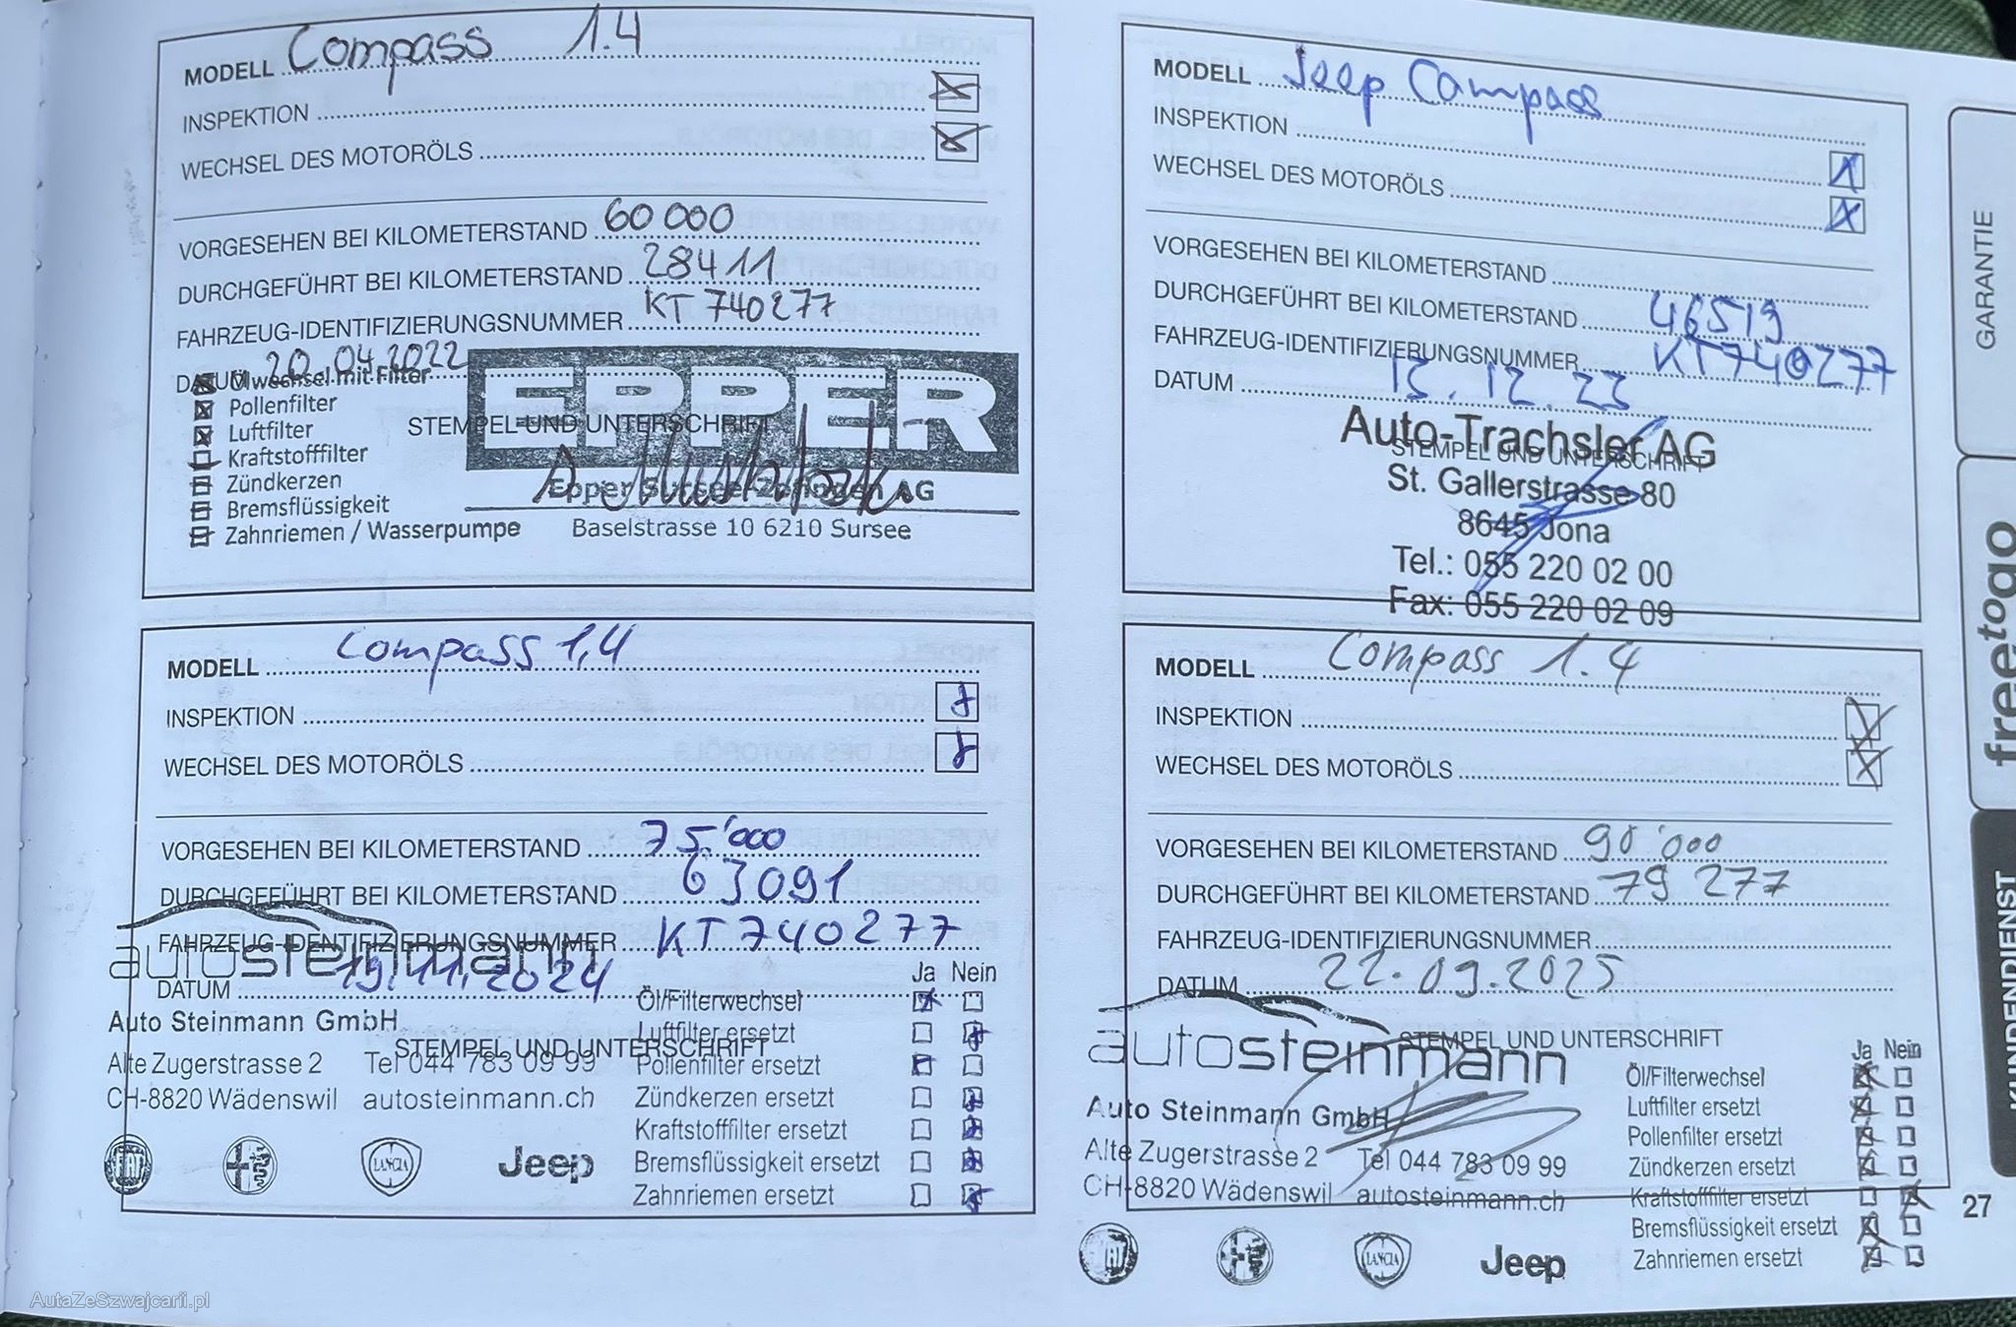 MODELL Compass 1.4
INSPEKTION
WECHSEL DES MOTORÖLS
VORGESEHEN BEI KILOMETERSTAND 60 000
DURCHGEFÜHRT BEI KILOMETERSTAND 28411
FAHRZEUG-IDENTIFIZIERUNGSNUMMER KT 740277
DATUM 20.04.2022
Ölwechsel mit Filter
Pollenfilter
Luftfilter
Kraftstofffilter
Zündkerzen
Bremsflüssigkeit
Zahnriemen / Wasserpumpe
STEMPEL UND UNTERSCHRIFT
EPPER
Epper Sursee-Zofingen AG
Baselstrasse 10 6210 Sursee
MODELL Jeep Compass
INSPEKTION
WECHSEL DES MOTORÖLS
VORGESEHEN BEI KILOMETERSTAND
DURCHGEFÜHRT BEI KILOMETERSTAND 46519
FAHRZEUG-IDENTIFIZIERUNGSNUMMER KT740277
DATUM 13.12.23
STEMPEL UND UNTERSCHRIFT
Auto-Trachsler AG
St. Gallerstrasse 80
8645 Jona
Tel.: 055 220 02 00
Fax: 055 220 02 09
MODELL Compass 1,4
INSPEKTION
WECHSEL DES MOTORÖLS
VORGESEHEN BEI KILOMETERSTAND 75'000
DURCHGEFÜHRT BEI KILOMETERSTAND 63091
FAHRZEUG-IDENTIFIZIERUNGSNUMMER KT 740277
DATUM 19.11.2024
STEMPEL UND UNTERSCHRIFT
autosteinmann
Auto Steinmann GmbH
Alte Zugerstrasse 2 Tel 044 783 09 99
CH-8820 Wädenswil autosteinmann.ch
FIAT
LANCIA
Jeep
Ja Nein
Öl/Filterwechsel
Luftfilter ersetzt
Pollenfilter ersetzt
Zündkerzen ersetzt
Kraftstofffilter ersetzt
Bremsflüssigkeit ersetzt
Zahnriemen ersetzt
MODELL Compass 1.4
INSPEKTION
WECHSEL DES MOTORÖLS
VORGESEHEN BEI KILOMETERSTAND 90'000
DURCHGEFÜHRT BEI KILOMETERSTAND 79 277
FAHRZEUG-IDENTIFIZIERUNGSNUMMER
DATUM 22.09.2025
STEMPEL UND UNTERSCHRIFT
autosteinmann
Auto Steinmann GmbH
Alte Zugerstrasse 2 Tel 044 783 09 99
CH-8820 Wädenswil autosteinmann.ch
FIAT
LANCIA
Jeep
Ja Nein
Öl/Filterwechsel
Luftfilter ersetzt
Pollenfilter ersetzt
Zündkerzen ersetzt
Kraftstofffilter ersetzt
Bremsflüssigkeit ersetzt
Zahnriemen ersetzt
GARANTIE
freetogo
KUNDENDIENST
27
AutaZeSzwajcarii.pl